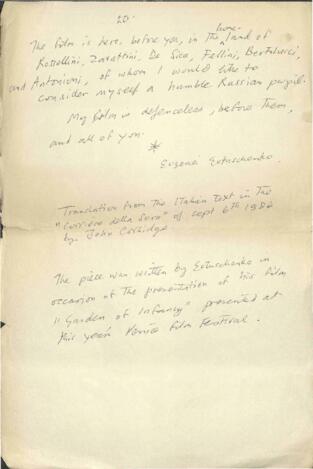 20.
The film is here, before you, in the home-land of
Rossellini, Zavattini, De Sica, Fellini, Bertolucci,
and Antonioni, of whom I would like to
consider myself a humble Russian pupil.
My film is defenceless, before them,
and all of you.
*
Evgenei Evtuschenko.
Translation from the Italian text in the
"Corriere della Sera" of sept 6th 1984
by John
The piece was written by Evtuschenko in
occasion of the presentation of his film
"Garden of Infancy" presented at
this year's Venice Film Festival.